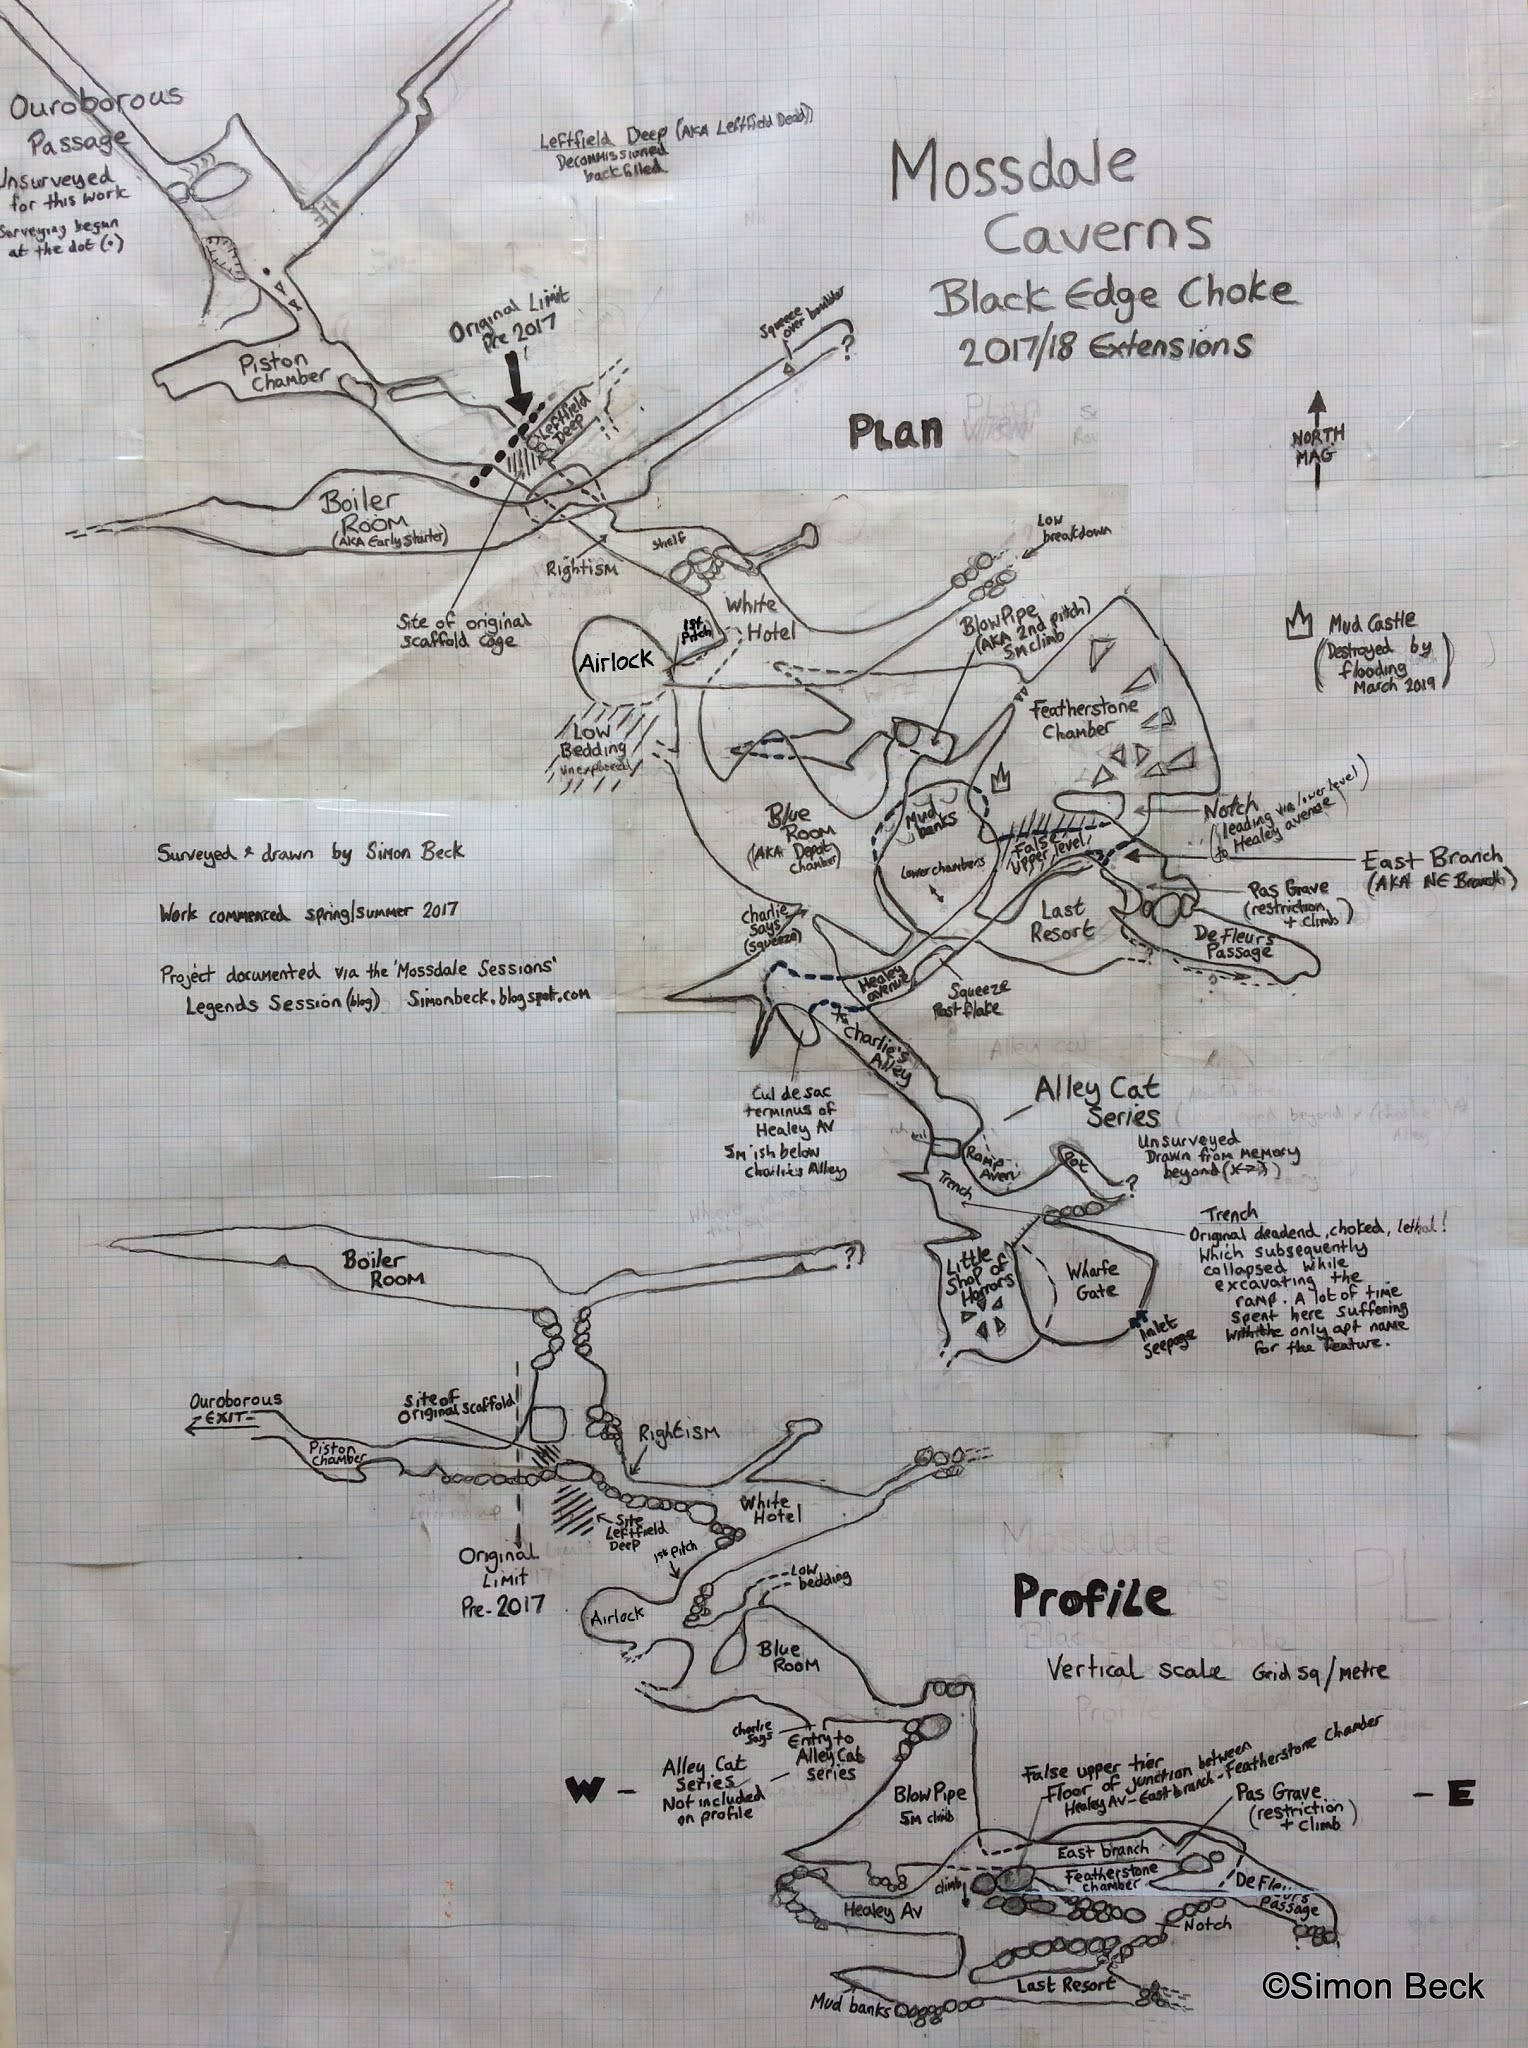 Ouroborous
Passage
Unsurveyed
for this work
Surveying begun
at the dot (•)
Leftfield Deep (AKA Leftfield Dead)
Decommissioned
backfilled
Mossdale
Caverns
Black Edge Choke
2017/18 Extensions
Original Limit
Pre 2017
Squeeze
over boulder
?
Piston
Chamber
Leftfield
Deep
Plan
NORTH
MAG
Boiler
Room
(AKA Early Starter)
Rightism
Shelf
Low
breakdown
Site of original
scaffold cage
1st
Pitch
White
Hotel
BlowPipe
(AKA 2nd pitch)
5m climb
Mud Castle
(Destroyed by
flooding
March 2019)
Airlock
Low
Bedding
unexplored
Featherstone
Chamber
Blue
Room
(AKA Depot
Chamber)
Mud
banks
Lower chambers
False
upper level
Notch
(leading via lower level)
to Healey avenue)
East Branch
(AKA NE Branch)
Surveyed & drawn by Simon Beck
Pas Grave
(restriction
+ climb)
Last
Resort
De Fleurs
Passage
Work commenced spring/summer 2017
Charlie
Says
(squeeze)
Project documented via the 'Mossdale Sessions'
Legends Session (blog) Simonbeck.blogspot.com
Healey
avenue
Squeeze
Past flake
Charlie's
Alley
Cul de sac
terminus of
Healey Av
5m ish below
Charlie's Alley
Alley Cat
Series
Unsurveyed
Drawn from memory
Ramp
Aven
Pot
?
Trench
Trench
Original deadend, choked, lethal!
Which subsequently
collapsed while
excavating the
ramp. A lot of time
spent here suffering
with the only apt name
for the feature.
Little
Shop of
Horrors
Wharfe
Gate
Inlet
Seepage
Boiler
Room
?
Ouroborous
EXIT
Site of
Original scaffold
Piston
Chamber
Rightism
White
Hotel
Site
Leftfield
Deep
1st Pitch
Original
Limit
Pre-2017
Low
bedding
Airlock
Blue
Room
Profile
Vertical scale Grid sq/metre
Charlie
Says
Entry to
Alley Cat
series
Alley Cat
Series
Not included
on profile
W -
- E
BlowPipe
5m climb
False upper tier
Floor of junction between
Healey Av - East branch - Featherstone Chamber
Pas Grave
(restriction
+ climb)
East branch
Featherstone
chamber
climb
Passage
Healey Av
Notch
Last Resort
Mud banks
©Simon Beck